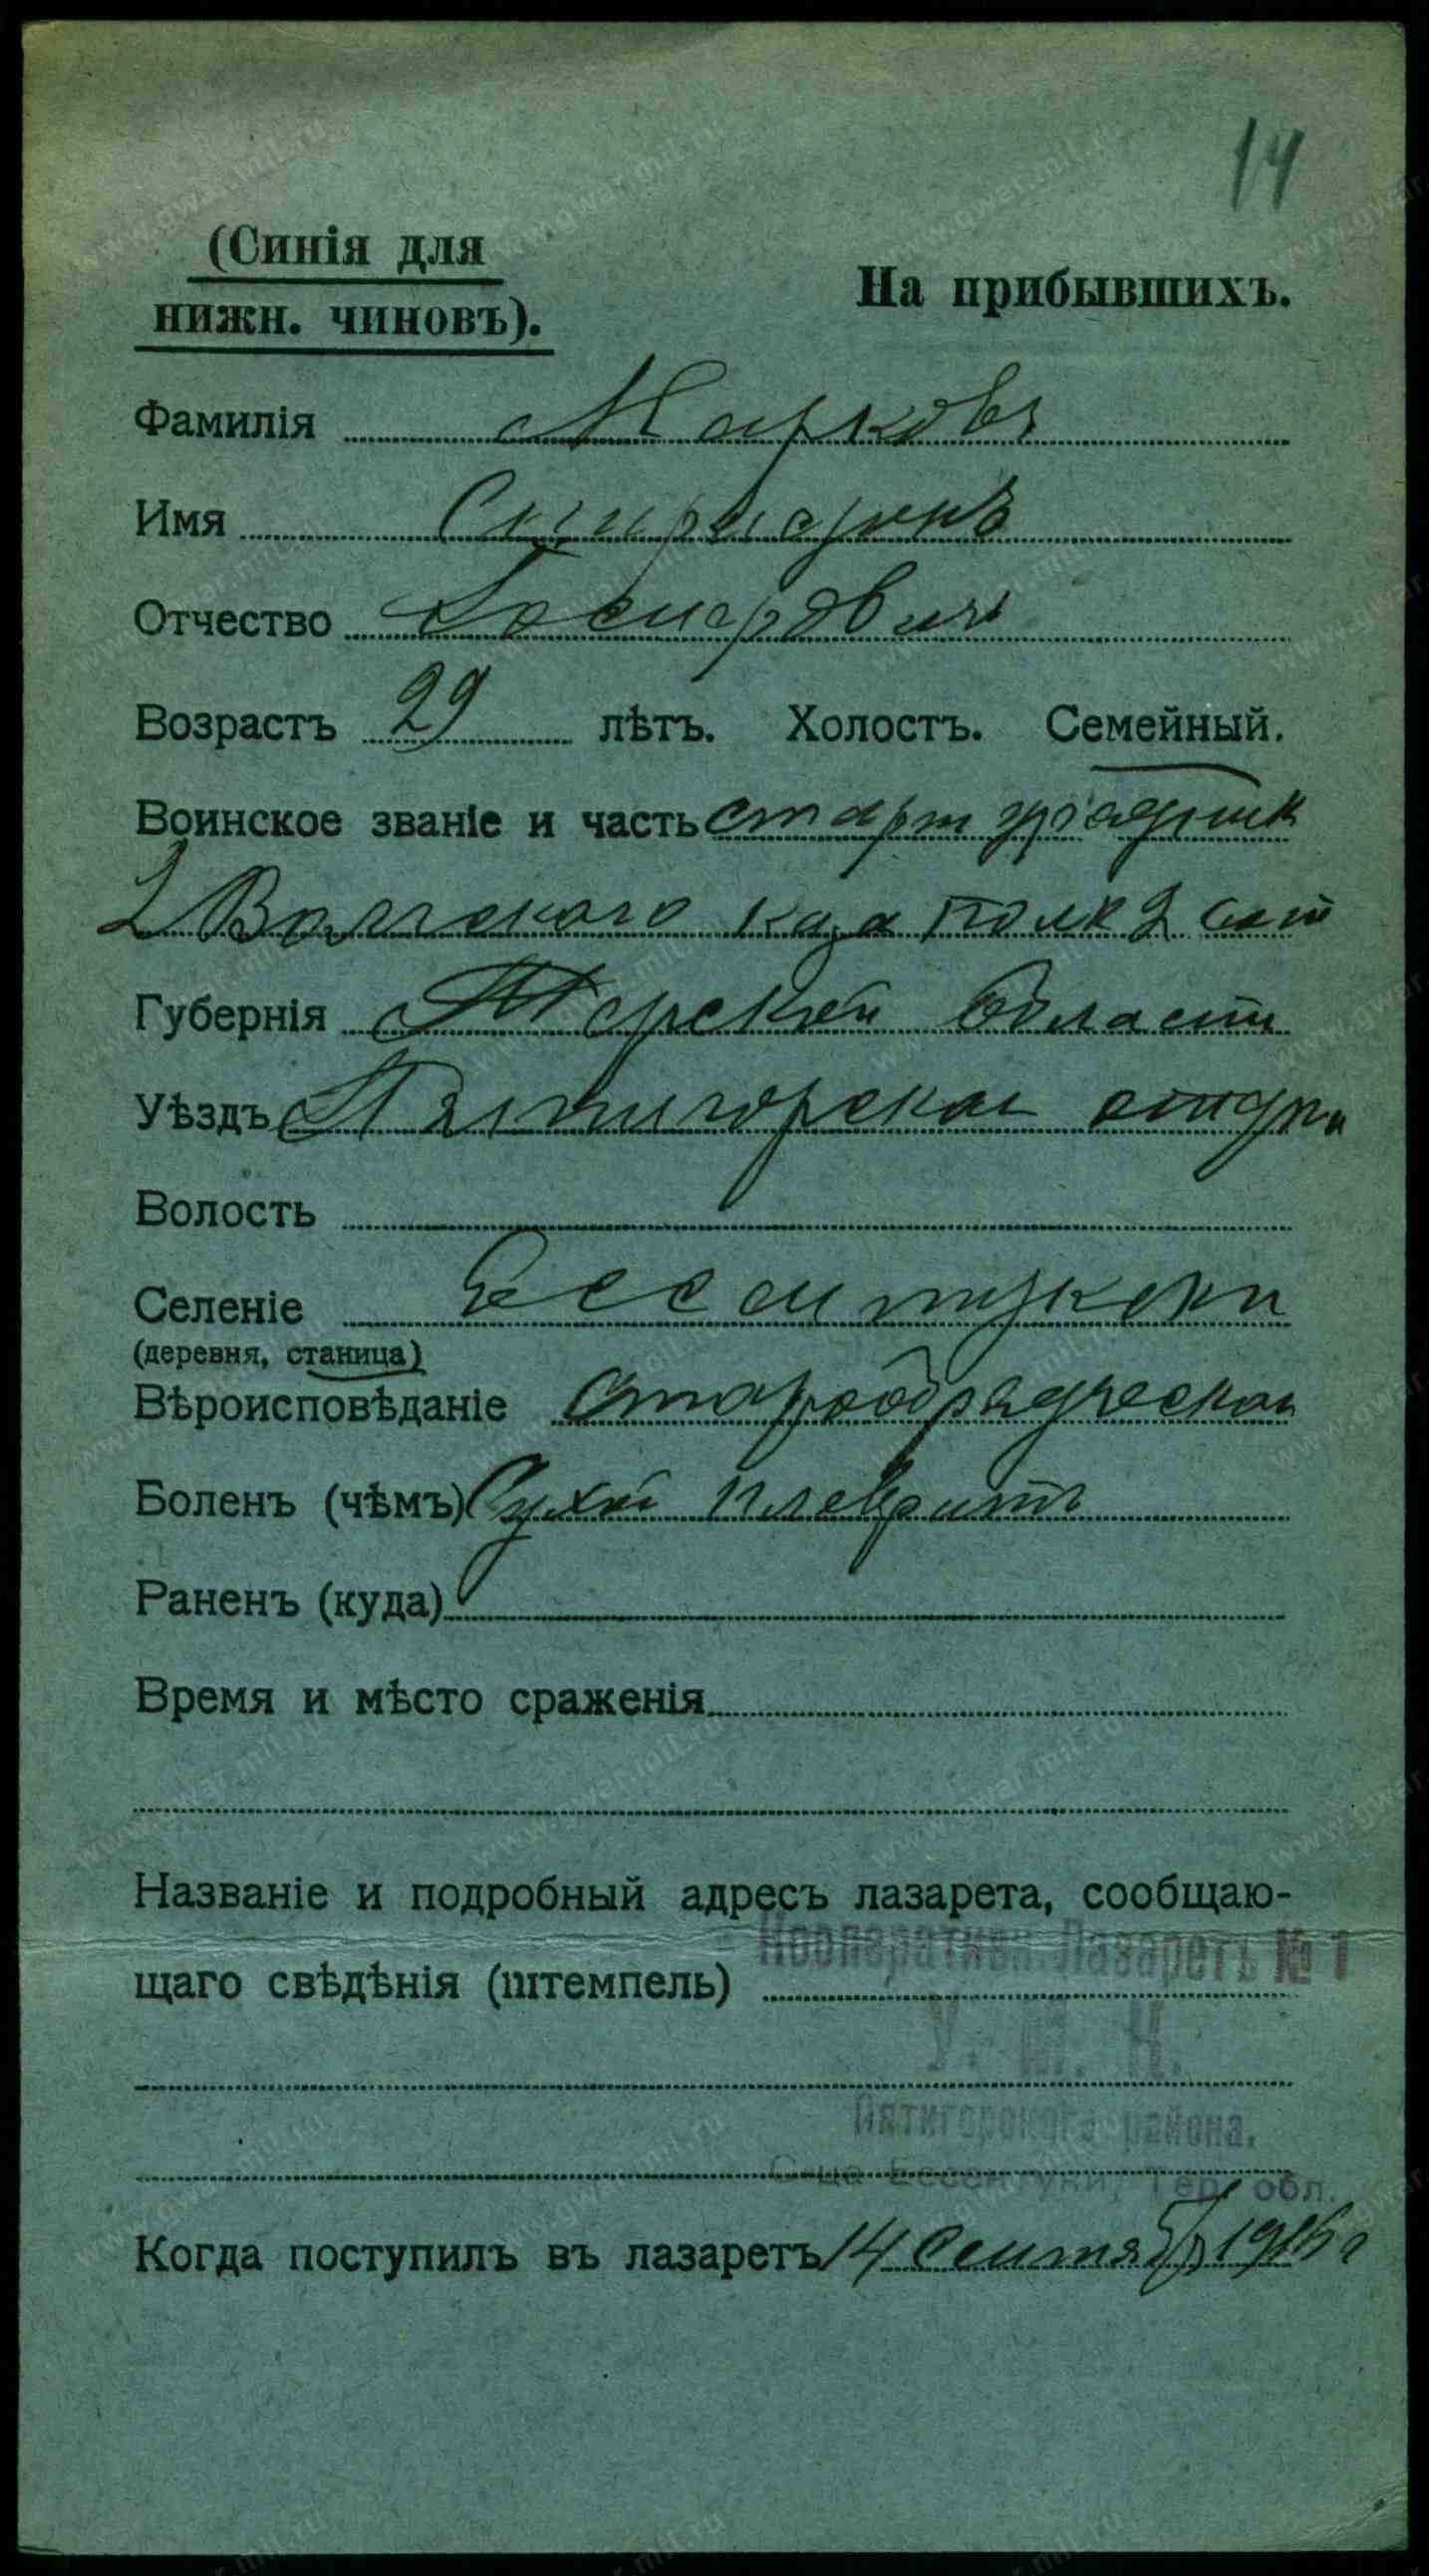 14
(Синія для
нижн. чиновъ).
На прибывшихъ.
Фамилія Марковъ
Имя Спиридонъ
Отчество
Возрастъ 29 лѣтъ. Холостъ. Семейный.
Воинское званіе и часть старш урядник
2 Волгскаго каз полк 2 сот
Губернія Терской области
Уѣздъ Пятигорскаг отдѣл
Волость
Селеніе Ессентукски
(деревня, станица)
Вѣроисповѣданіе старообрядческаг
Боленъ (чѣмъ) Сухой плевритъ
Раненъ (куда)
Время и мѣсто сраженія
Названіе и подробный адресъ лазарета, сообщаю-
щаго свѣдѣнія (штемпель) Кооператив. Лазаретъ № 1
У. М. К.
Пятигорскаго района.
С-ца Ессентуки, Тер. обл.
Когда поступилъ въ лазаретъ 14 Сентяб 1916 г